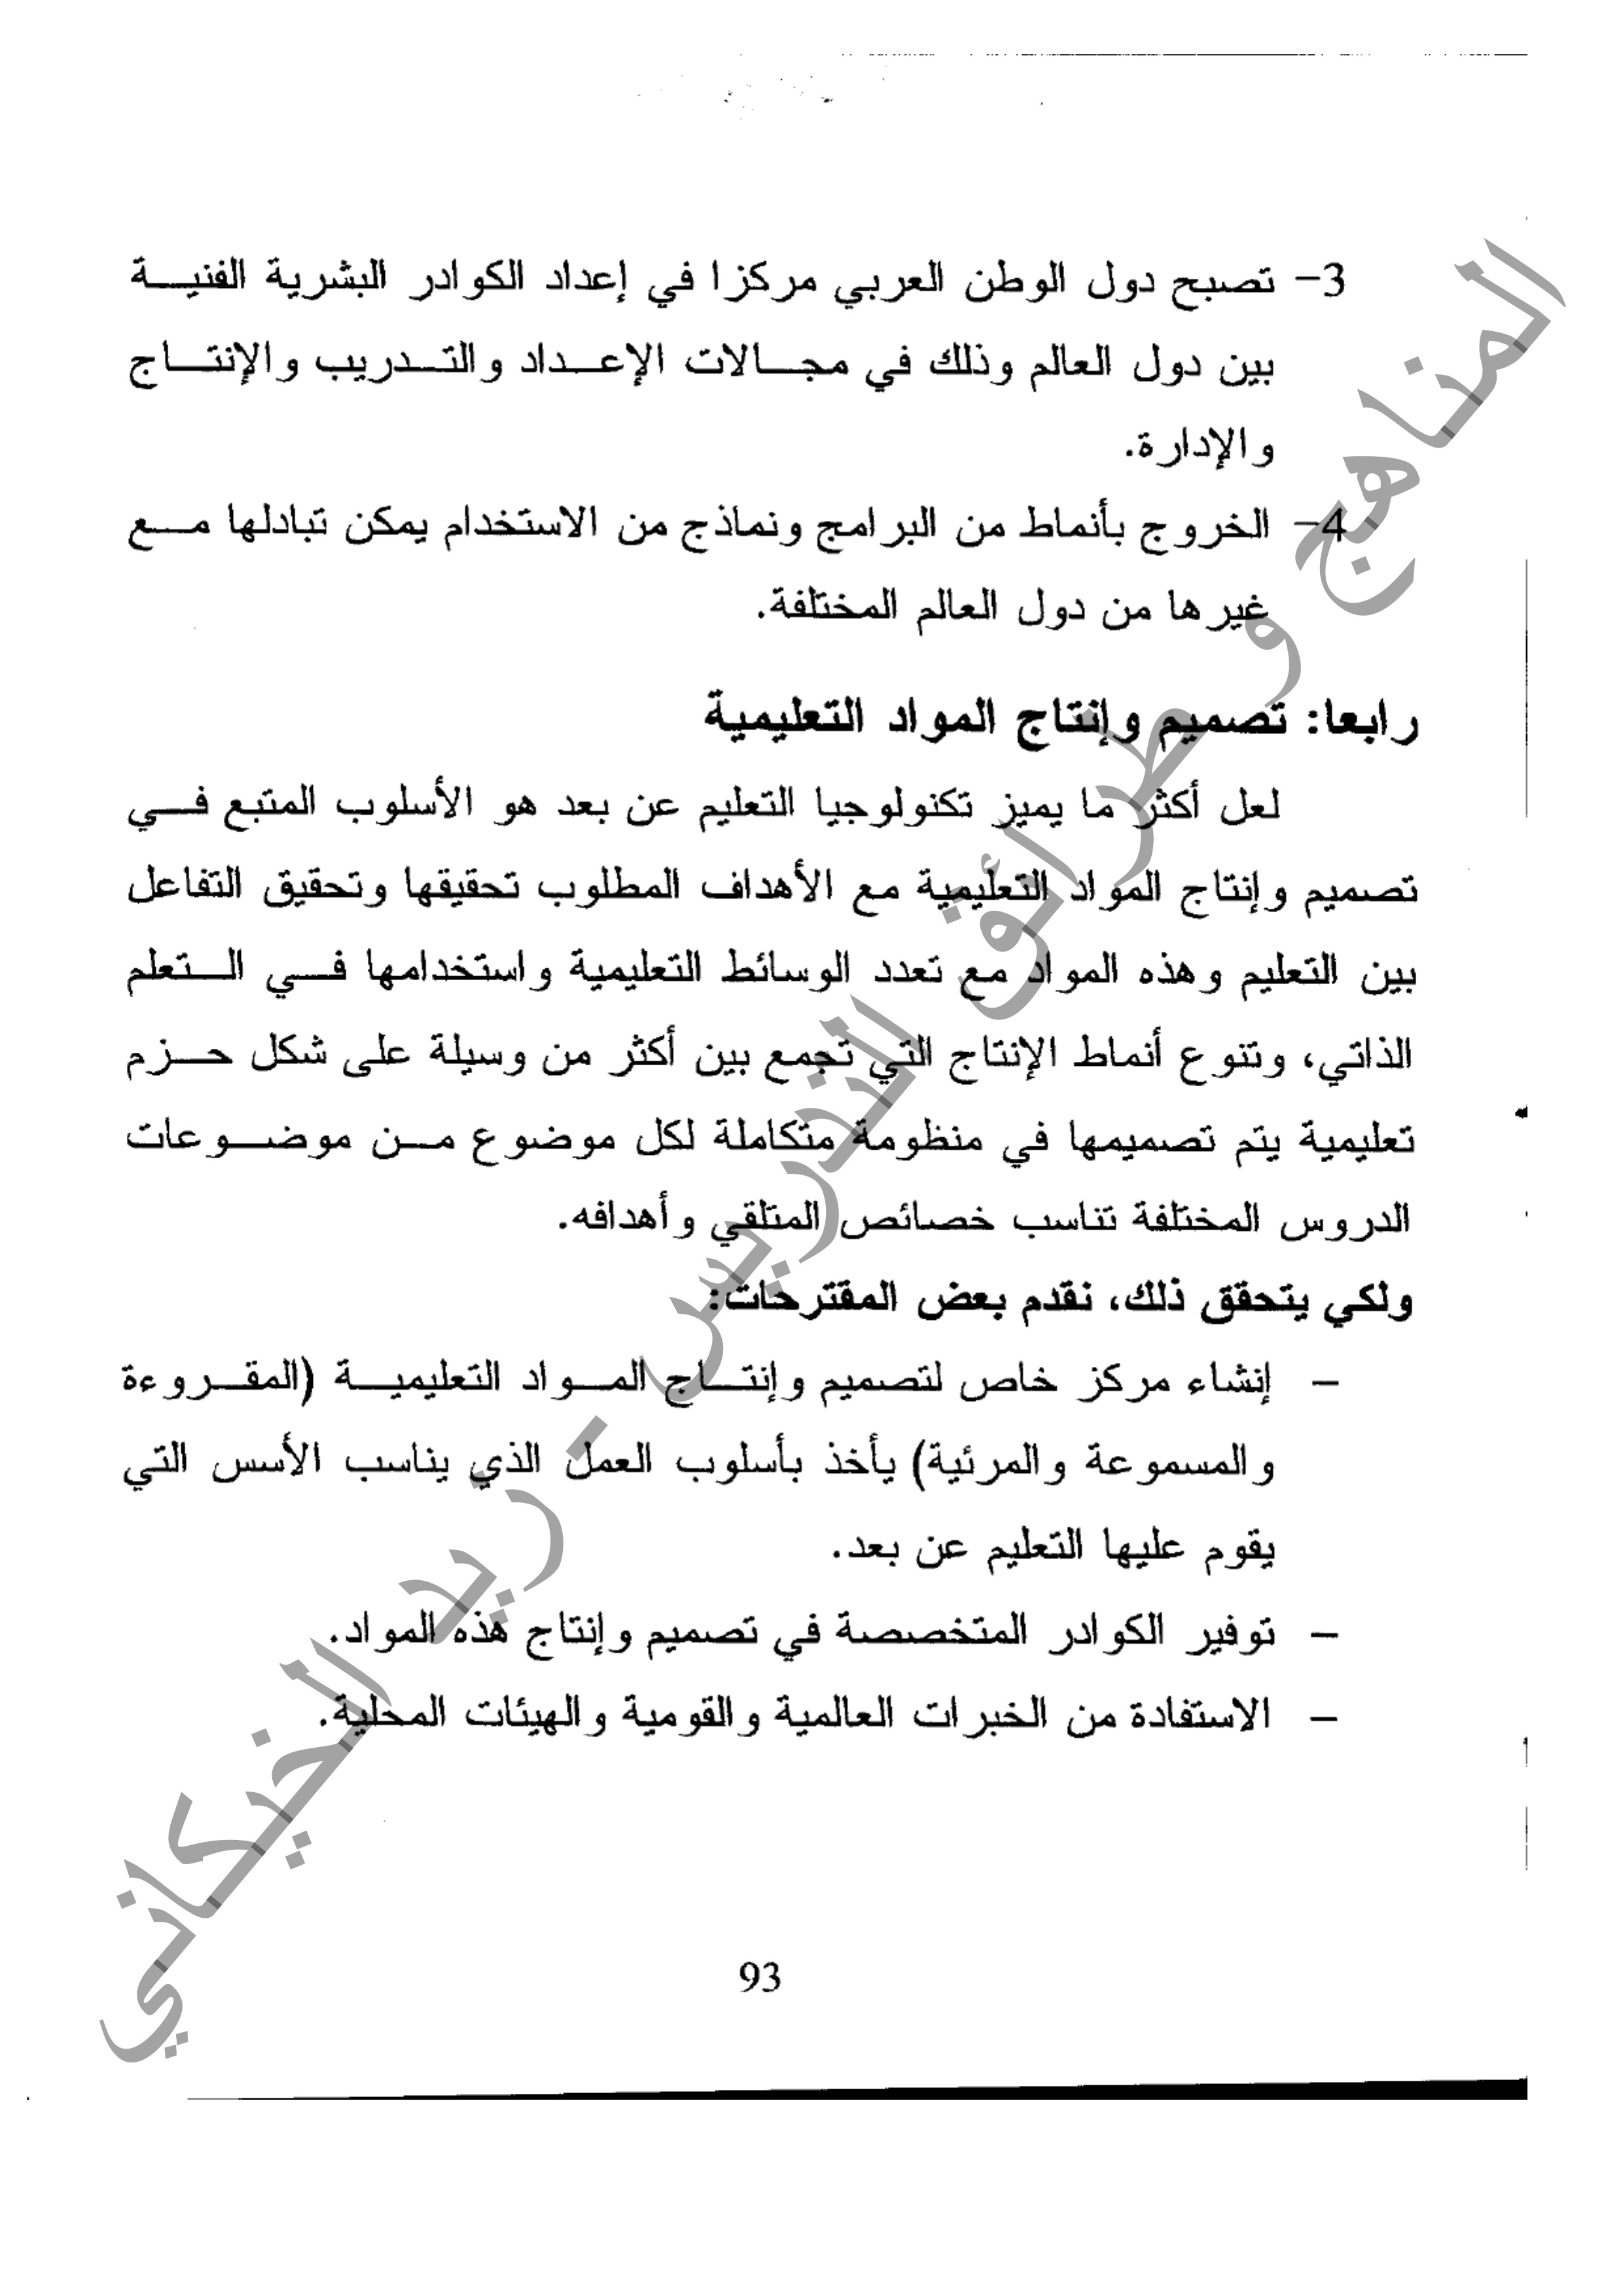 3- تصبح دول الوطن العربي مركزا في إعداد الكوادر البشرية الفنية
بين دول العالم وذلك في مجالات الإعداد والتدريب والإنتاج
والإدارة.
4- الخروج بأنماط من البرامج ونماذج من الاستخدام يمكن تبادلها مع
غيرها من دول العالم المختلفة.
رابعا: تصميم وإنتاج المواد التعليمية
لعل أكثر ما يميز تكنولوجيا التعليم عن بعد هو الأسلوب المتبع في
تصميم وإنتاج المواد التعليمية مع الأهداف المطلوب تحقيقها وتحقيق التفاعل
بين التعليم وهذه المواد مع تعدد الوسائط التعليمية واستخدامها في التعلم
الذاتي، وتنوع أنماط الإنتاج التي تجمع بين أكثر من وسيلة على شكل حزم
تعليمية يتم تصميمها في منظومة متكاملة لكل موضوع من موضوعات
الدروس المختلفة تناسب خصائص المتلقي وأهدافه.
ولكي يتحقق ذلك، نقدم بعض المقترحات:
- إنشاء مركز خاص لتصميم وإنتاج المواد التعليمية (المقروءة
والمسموعة والمرئية) يأخذ بأسلوب العمل الذي يناسب الأسس التي
يقوم عليها التعليم عن بعد.
- توفير الكوادر المتخصصة في تصميم وإنتاج هذه المواد.
- الاستفادة من الخبرات العالمية والقومية والهيئات المحلية.
93
المناهج و طرائق التدريس - زيد الخيكاني